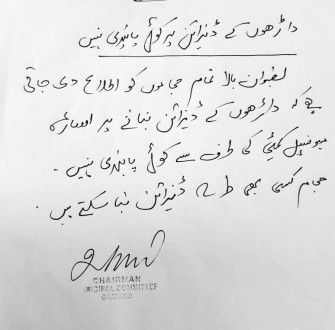 داڑھوں کے ڈیزائن پر کوئی پابندی نہیں
بعنوان بالا تمام حجاموں کو اطلاع دی جاتی
ہے کہ داڑھوں کے ڈیزائن بنانے پر اورماڑہ
میونسپل کمیٹی کی طرف سے کوئی پابندی نہیں -
حجام کسی بھی طرح ڈیزائن بنا سکتے ہیں
CHAIRMAN
MUNICIPAL COMMITTEE
ORMARA